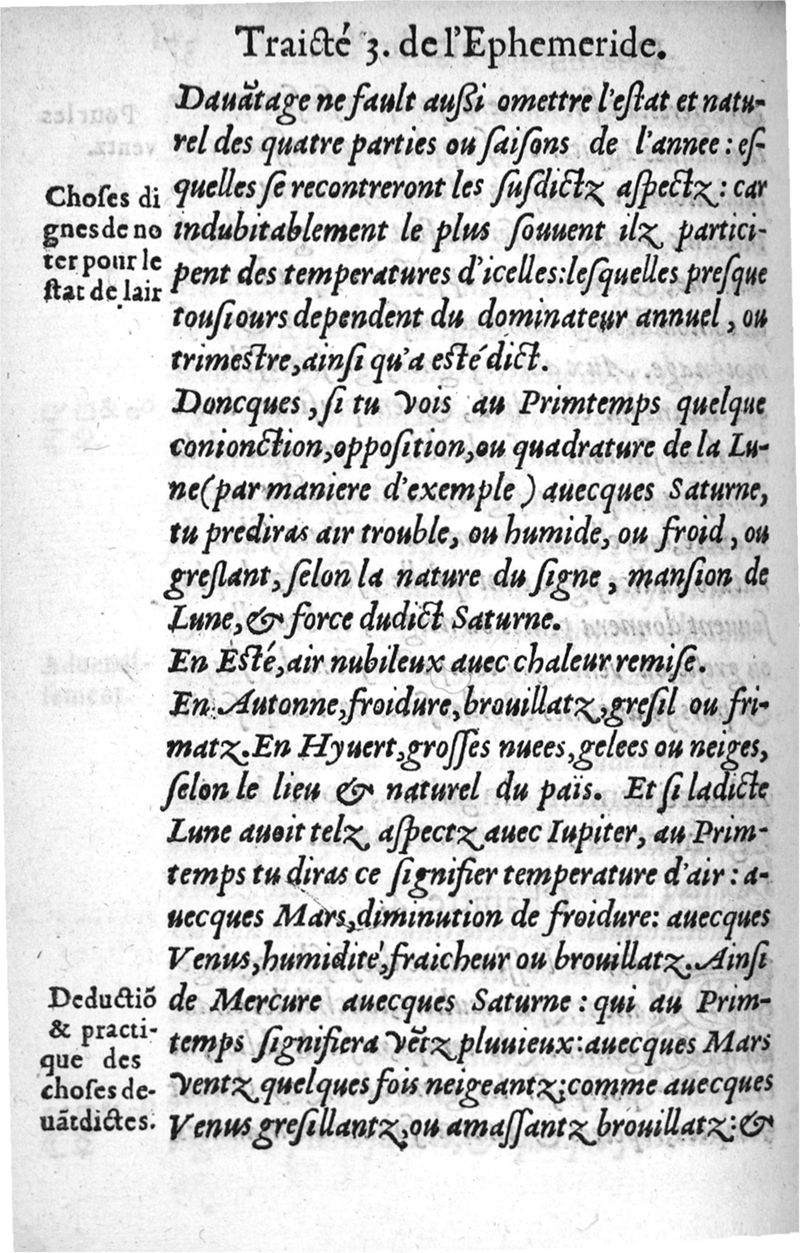 Traicté 3. de l'Ephemeride.
Dauãtage ne fault außi omettre l'estat et natu-
rel des quatre parties ou saisons de l'annee: es-
quelles se recontreront les susdictz aspectz: car
indubitablement le plus souuent ilz partici-
pent des temperatures d'icelles: lesquelles presque
tousiours dependent du dominateur annuel, ou
trimestre, ainsi qu'a esté dict.
Choses di
gnes de no
ter pour le
stat de lair
Doncques, si tu vois au Primtemps quelque
conionction, opposition, ou quadrature de la Lu-
ne (par maniere d'exemple) auecques Saturne,
tu prediras air trouble, ou humide, ou froid, ou
greslant, selon la nature du signe, mansion de
Lune, & force dudict Saturne.
En Esté, air nubileux auec chaleur remise.
En Autonne, froidure, brouillatz, gresil ou fri-
matz. En Hyuert, grosses nuees, gelees ou neiges,
selon le lieu & naturel du païs. Et si ladicte
Lune auoit telz aspectz auec Iupiter, au Prim-
temps tu diras ce signifier temperature d'air: a-
uecques Mars, diminution de froidure: auecques
Venus, humidité, fraicheur ou brouillatz. Ainsi
de Mercure auecques Saturne: qui au Prim-
temps signifiera vẽtz pluuieux: auecques Mars
ventz quelques fois neigeantz: comme auecques
Venus gresillantz, ou amassantz brouillatz: &
Deductiõ
& practi-
que des
choses de-
uãtdictes.